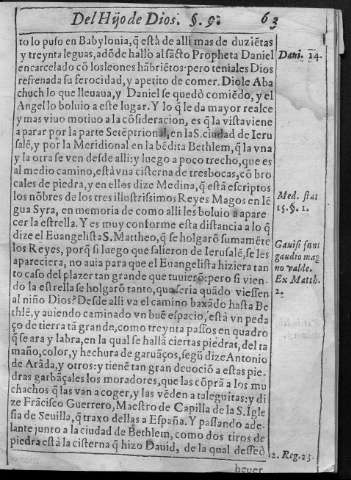 Del Hijo de Dios. §. 9. 63
to lo puso en Babylonia, q̃ està de alli mas de duziẽtas
y treynta leguas, adõde hallo al sãcto Propheta Daniel
encarcelado cõ los leones hãbriẽtos: pero teniales Dios
refrenada su ferocidad, y apetito de comer. Diole Aba
chuch lo que lleuaua, y Daniel se quedò comiẽdo, y el
Angel lo boluio a este lugar. Y lo q̃ le da mayor realce
y mas viuo motiuo a la cõsideracion, es q̃ la vista viene
a parar por la parte Setẽptrional, en la S. ciudad de Ieru
salẽ, y por la Meridional en la bẽdita Bethlem, q̃ la vna
y la otra se ven desde alli: y luego a poco trecho, que es
al medio camino, està vna cisterna de tres bocas, cõ bro
cales de piedra, y en ellos dize Medina, q̃ està escriptos
los nõbres de los tres illustrissimos Reyes Magos en lẽ
gua Syra, en memoria de como alli les boluio a apare-
cer la estrella. Y es muy conforme esta distancia a lo q̃
dize el Euangelista S. Mattheo, q̃ se holgarõ sumamẽte
los Reyes, porq̃ si luego que salieron de Ierusalẽ, se les
apareciera, no auia para que el Euangelista hiziera tan
to caso del plazer tan grande que tuuierõ: pero si vien-
do la estrella se holgarõ tanto, que seria quãdo viessen
al niño Dios? Desde alli va el camino baxãdo hasta Be
thlẽ, y auiendo caminado vn buẽ espacio, està vn peda
ço de tierra tã grande, como treynta passos en quadro
q̃ se ara y labra, en la qual se hallã ciertas piedras, del ta
maño, color, y hechura de garuãços, segũ dize Antonio
de Arãda, y otros: y tienẽ tan gran deuociõ a estas pie-
dras garbãçales los moradores, que las cõprã a los mu
chachos q̃ las van a coger, y las vẽden a taleguitas: y di
ze Frãcisco Guerrero, Maestro de Capilla de la S. Igle
sia de Seuilla, q̃ traxo dellas a España. Y passando ade-
lante junto a la ciudad de Bethlem, como dos tiros de
piedra està la cisterna q̃ hizo Dauid, de la qual desseò
beuer
Dani. 14.
15. §. 1.
Gauisi sunt
gaudio mag
no valde.
Ex Matth.
2.
2. Reg. 23.